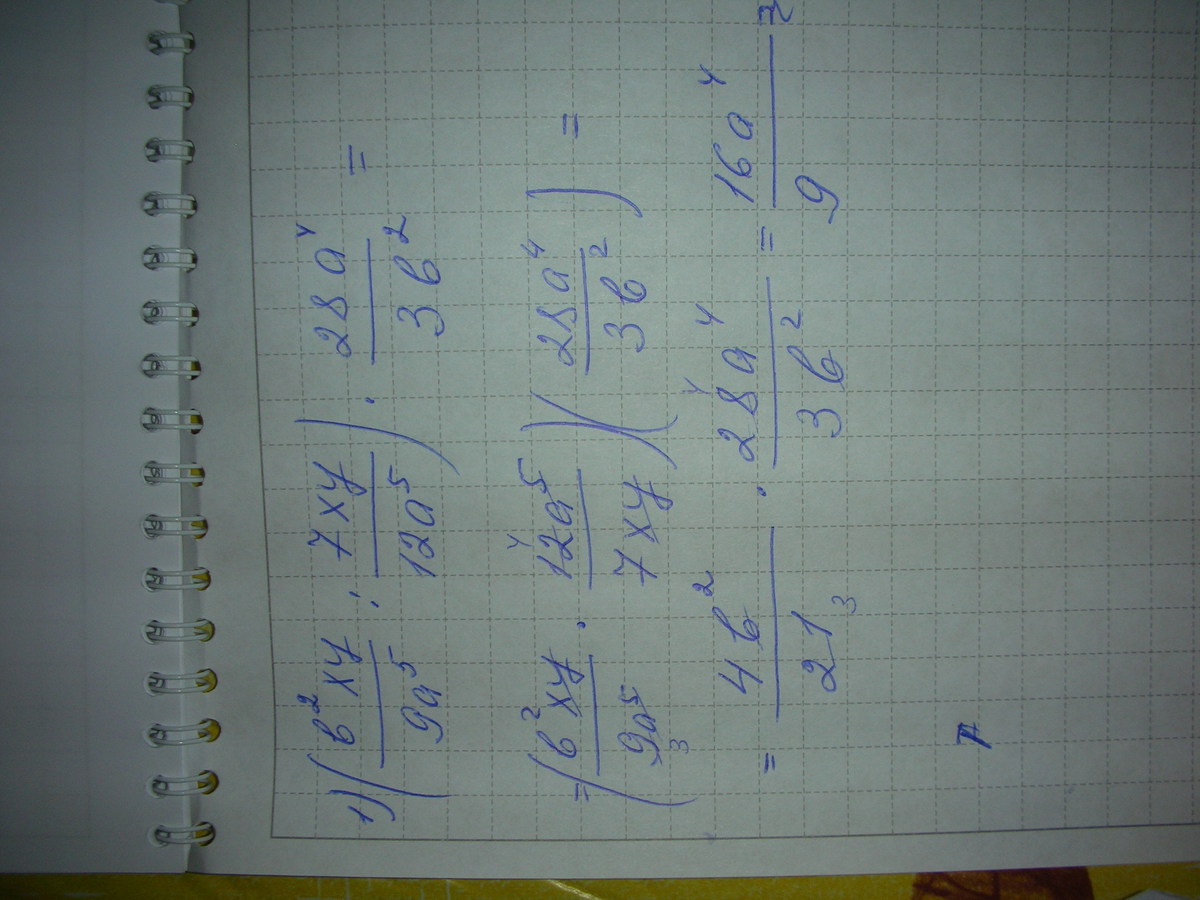 1) (b²xy/9a⁵ : 7xy/12a⁵) · 28a⁴/3b² =
= (b²xy/9a⁵ 3 · 4 12a⁵/7xy)(28a⁴/3b²) =
= 4b²/21 3 · 4 28a⁴/3b² = 16a⁴/9